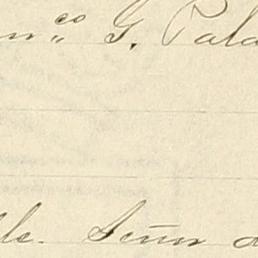 n.co G. Pala
le. Señor d